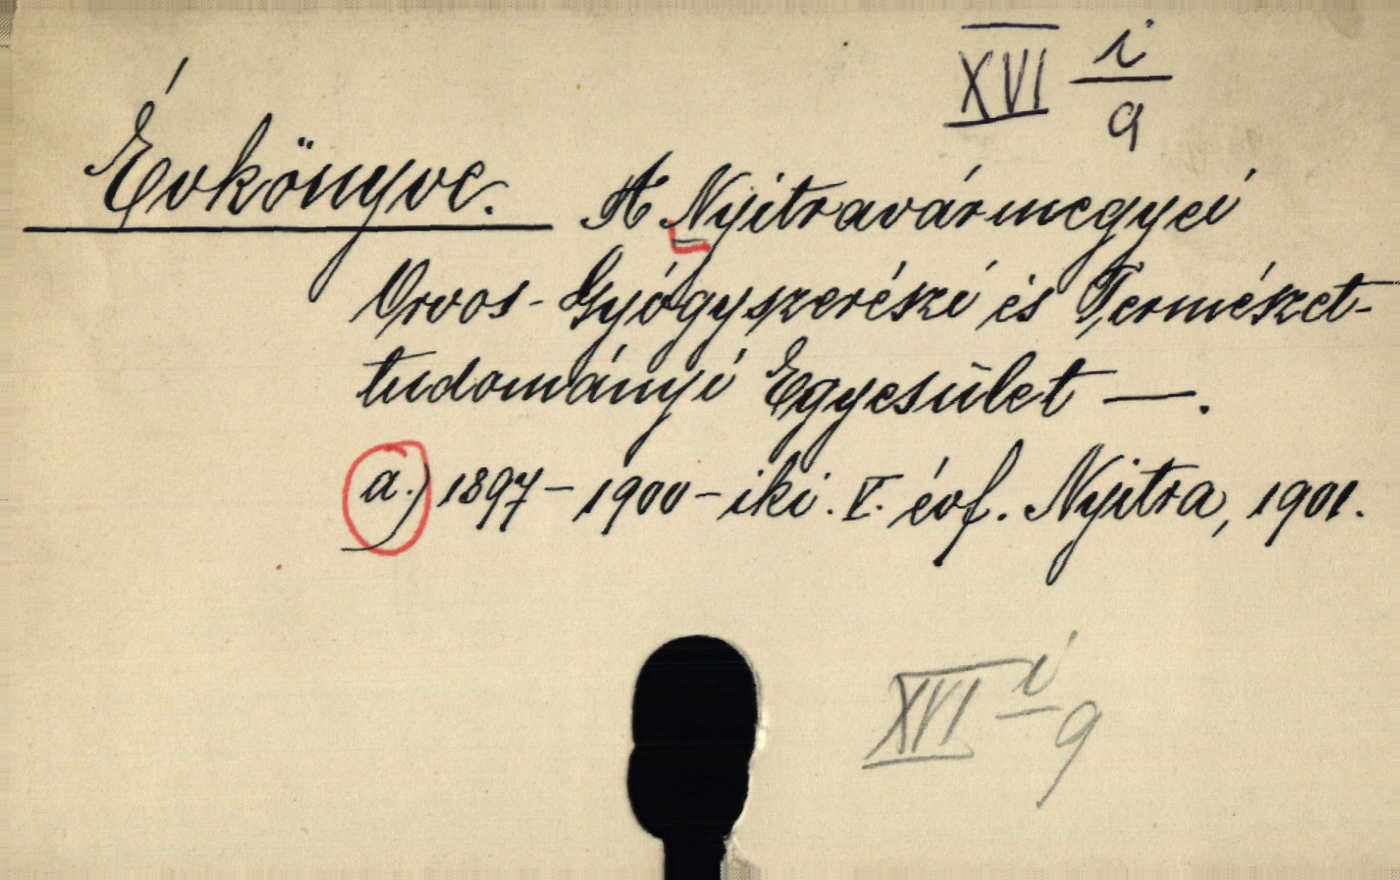 XVI i/9
Évkönyve. A Nyitravármegyei
Orvos- Gyógyszerészi és Természet-
tudományi Egyesület —.
a.) 1897–1900-iki. V. évf. Nyitra, 1901.
XVI i/9